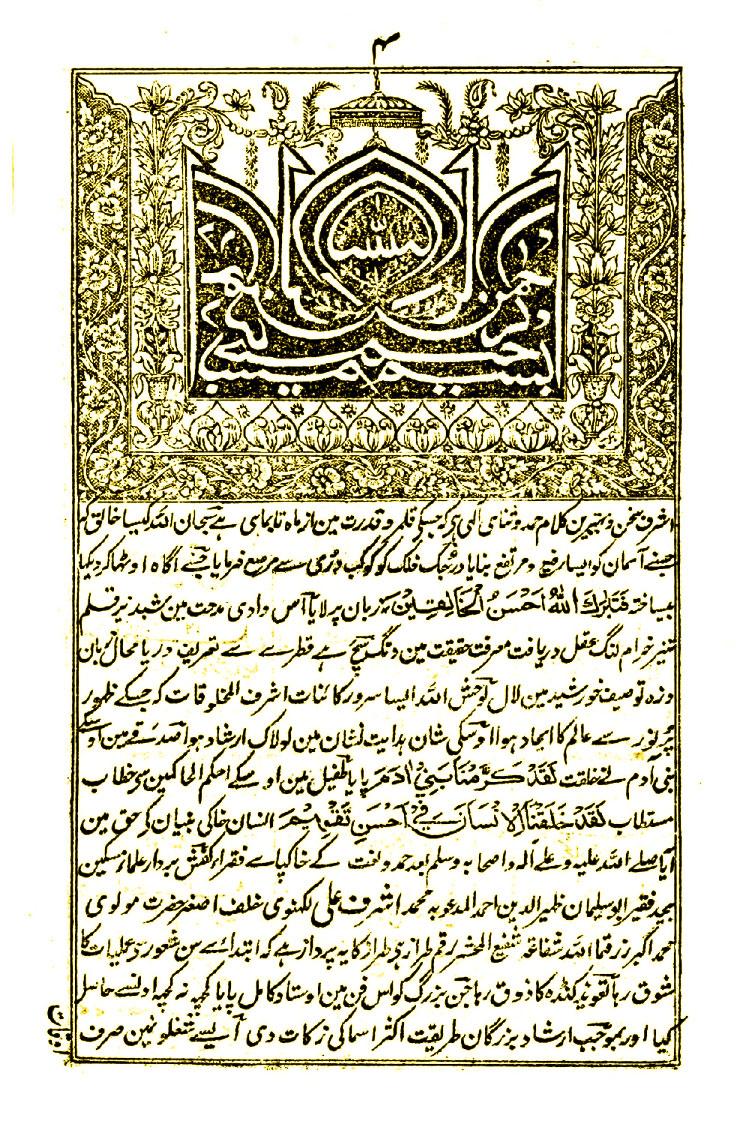 بسم اللہ
بسم اللہ الرحمن الرحیم
اشرف سخن و بہترین کلام حمد و ثنای الٰہی ہی کہ جسکی قلمرو قدرت مین از ماہ تا بماہی ہے سبحان اللہ کیسا خالق کہ
جسنے آسمان کو ایسا رفیع و مرتفع بنایا درجک فلک کو کوکب دری سے مرصع فرمایا جسنے آگاہ اوٹھا کر دیکھا
بیساختہ فَتَبٰرَكَ اللهُ اَحْسَنُ الْخَالِقِيْنَ زبان پر لایا اس وادی مدحت مین شبدیز قلم
تیز خرام لنگ عقل دریافت معرفت حقیقت مین دنگ سچ ہے قطرے سے تعریف دریا محال زبان
ذرہ توصیف خورشید مین لال لوحش اللہ ایسا سرور کائنات اشرف المخلوقات کہ جسکے ظہور
پر نور سے عالم کا ایجاد ہوا اوسکی شان ہدایت نشان مین لولاک ارشاد ہوا صدقے مین اوسکے
بنی آدم نے خلقت لَقَدْ كَرَّمْنَا بَنِيْ اٰدَمَ پایا طفیل مین اوسکے احکم الحاکمین سے خطاب
مستطاب لَقَدْ خَلَقْنَا الْاِنْسَانَ فِيْ اَحْسَنِ تَقْوِيْمٍ انسان خاکی بنیان کے حق مین
آیا صلے اللہ علیہ و علے آلہ و اصحابہ وسلم بعد حمد و نعت کے خاکپاے فقراء کفش بردار علماء مسکین
فقیر ابو سلیمان ظہیر الدین احمد المدعو بہ محمد اشرف علی لکھنوی خلف اصغر حضرت مولوی
محمد اکبر رزقنا اللہ شفاعۃ شفیع المحشر رقم طراز ہی طراز کا یہ پرداز ہے کہ ابتداے سن شعور سے عملیات کا
شوق رہا تعویذ گنڈہ کا ذوق رہا جن بزرگ کو اس فن مین اوستاد کامل پایا کچھ نہ کچھ اونسے حاصل
کیا اور بموجب ارشاد بزرگان طریقت اکثر اسما کی زکات دی آ یسے شغلونمین صرف